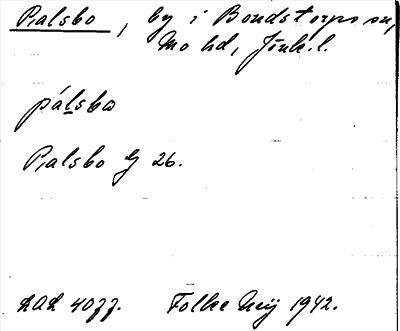 Palsbo, by i Bondstorps sn,
Mo hd, Jönk.l.
pálsbo
Palsbo G 26.
Folke Meij 1942.